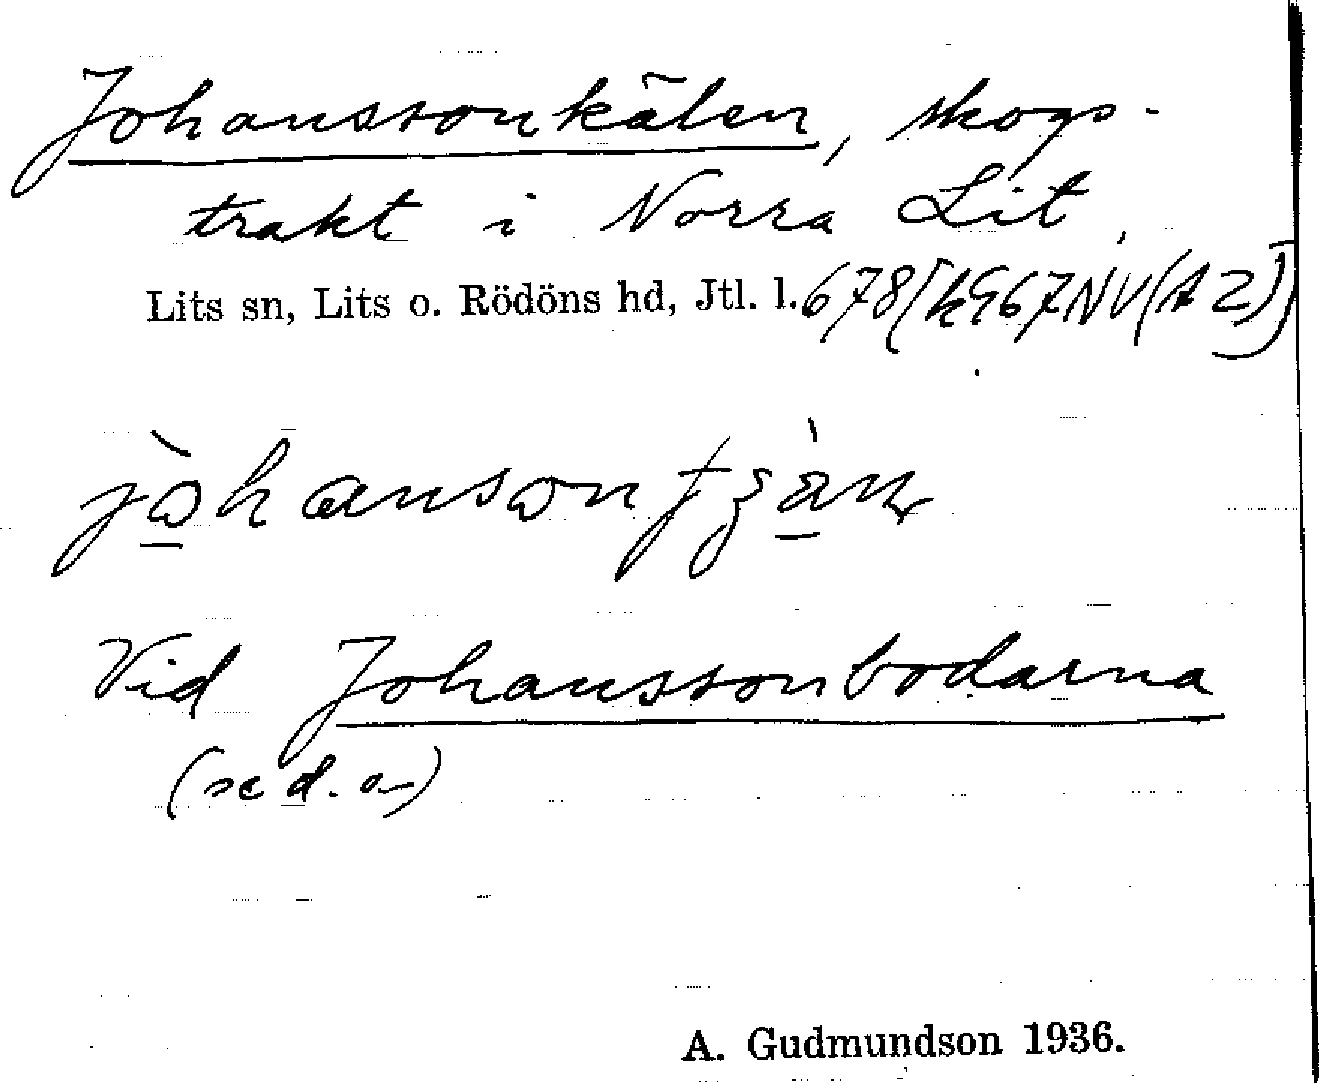 Johanssonkälen, skogs-
trakt i Norra Lit,
Lits sn, Lits o. Rödöns hd, Jtl. l.
Vid Johanssonbodarna
(se d. o.)
A. Gudmundson 1936.